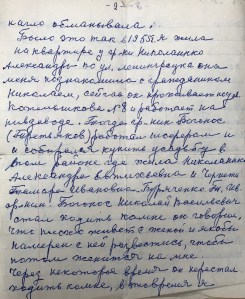 - 2 -
нами обманывала.
Было это так в 1955 я жила
на квартире у гр-ки Николаенко
Александры по ул. Ленинградска она
меня познакомила с гражданином
Николаем, сейчас он проживает по ул
Котельникова № 8 и работает на
пивзаводе. Тогда гр-ник Богонос
работал шофером и
собирался купить усадьбу в
том районе где жила Николаенко
Александра Евтихиевна и Черняк
Тамара Ивановна
гр-ник Богонос Николай Васильевич
стал ходить ко мне он говорил
что плохо живет с женой и якобы
намерен с ней развестись, чтобы
потом жениться на мне.
Через некоторое время он перестал
ходить ко мне, в то время я